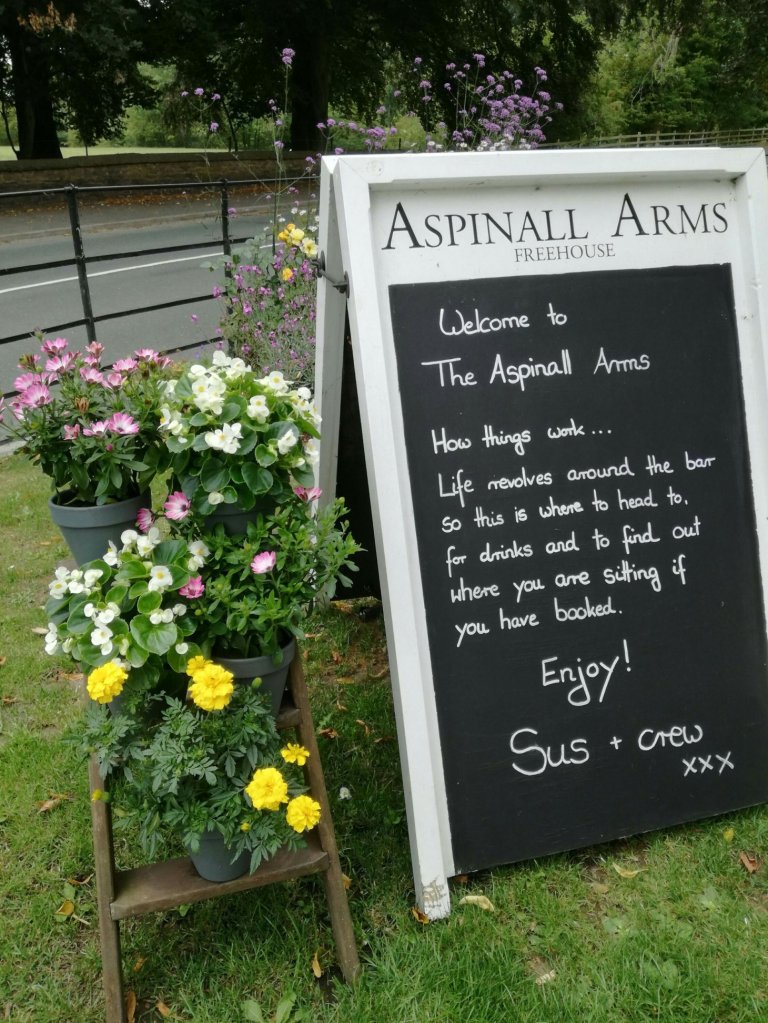 ASPINALL ARMS
FREEHOUSE
Welcome to
The Aspinall Arms
How things work...
Life revolves around the bar
so this is where to head to,
for drinks and to find out
where you are sitting if
you have booked.
Enjoy!
Sus + crew
xxx